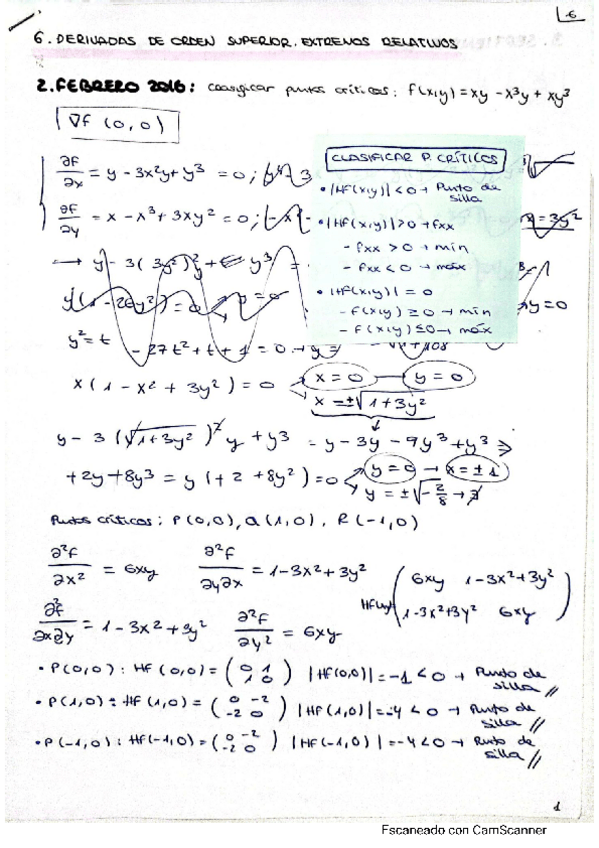 6
6. DERIVADAS DE ORDEN SUPERIOR. EXTREMOS RELATIVOS
2. FEBRERO 2016: clasificar puntos críticos: f(x,y) = xy - x³y + xy³
∇f (0,0)
∂f/∂x = y - 3x²y + y³ = 0;
∂f/∂y = x - x³ + 3xy² = 0;
CLASIFICAR P. CRÍTICOS
• |Hf(x,y)| < 0 → Punto de
silla
• |Hf(x,y)| > 0 → fxx
- fxx > 0 → mín
- fxx < 0 → máx
• |Hf(x,y)| = 0
- f(x,y) ≥ 0 → mín
- f(x,y) ≤ 0 → máx
x = 3y²
→ y - 3(3y²)²y + y³ =
y(1 - 26y²) = 0 → y = 0
y = 0
y² = t
- 27t² + t + 1 = 0 → y =
x(1 - x² + 3y²) = 0
x = 0 → y = 0
x = ±√1 + 3y²
y - 3(√1 + 3y²)²y + y³ = y - 3y - 9y³ + y³ ⇒
+2y + 8y³ = y(+2 + 8y²) = 0
y = 0 → x = ±1
y = ±√-2/8 → ∄
Puntos críticos: P(0,0), Q(1,0), R(-1,0)
∂²f/∂x² = 6xy ∂²f/∂y∂x = 1 - 3x² + 3y²
Hf(x,y) = (6xy 1 - 3x² + 3y²
1 - 3x² + 3y² 6xy)
∂²f/∂x∂y = 1 - 3x² + 3y² ∂²f/∂y² = 6xy
• P(0,0): Hf(0,0) = (0 1 1 0) |Hf(0,0)| = -1 < 0 → Punto de
silla //
• P(1,0): Hf(1,0) = (0 -2 -2 0) |Hf(1,0)| = -4 < 0 → Punto de
silla //
• P(-1,0): Hf(-1,0) = (0 -2 -2 0) |Hf(-1,0)| = -4 < 0 → Punto de
silla //
1
Escaneado con CamScanner